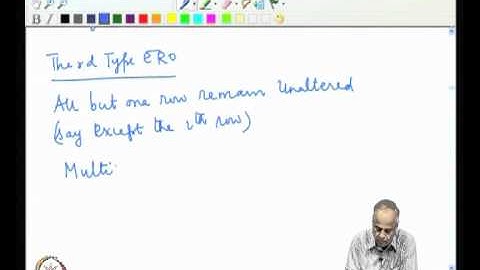 Third Type ERO
All but one row remain Unaltered
(say except the ith row)
Multi